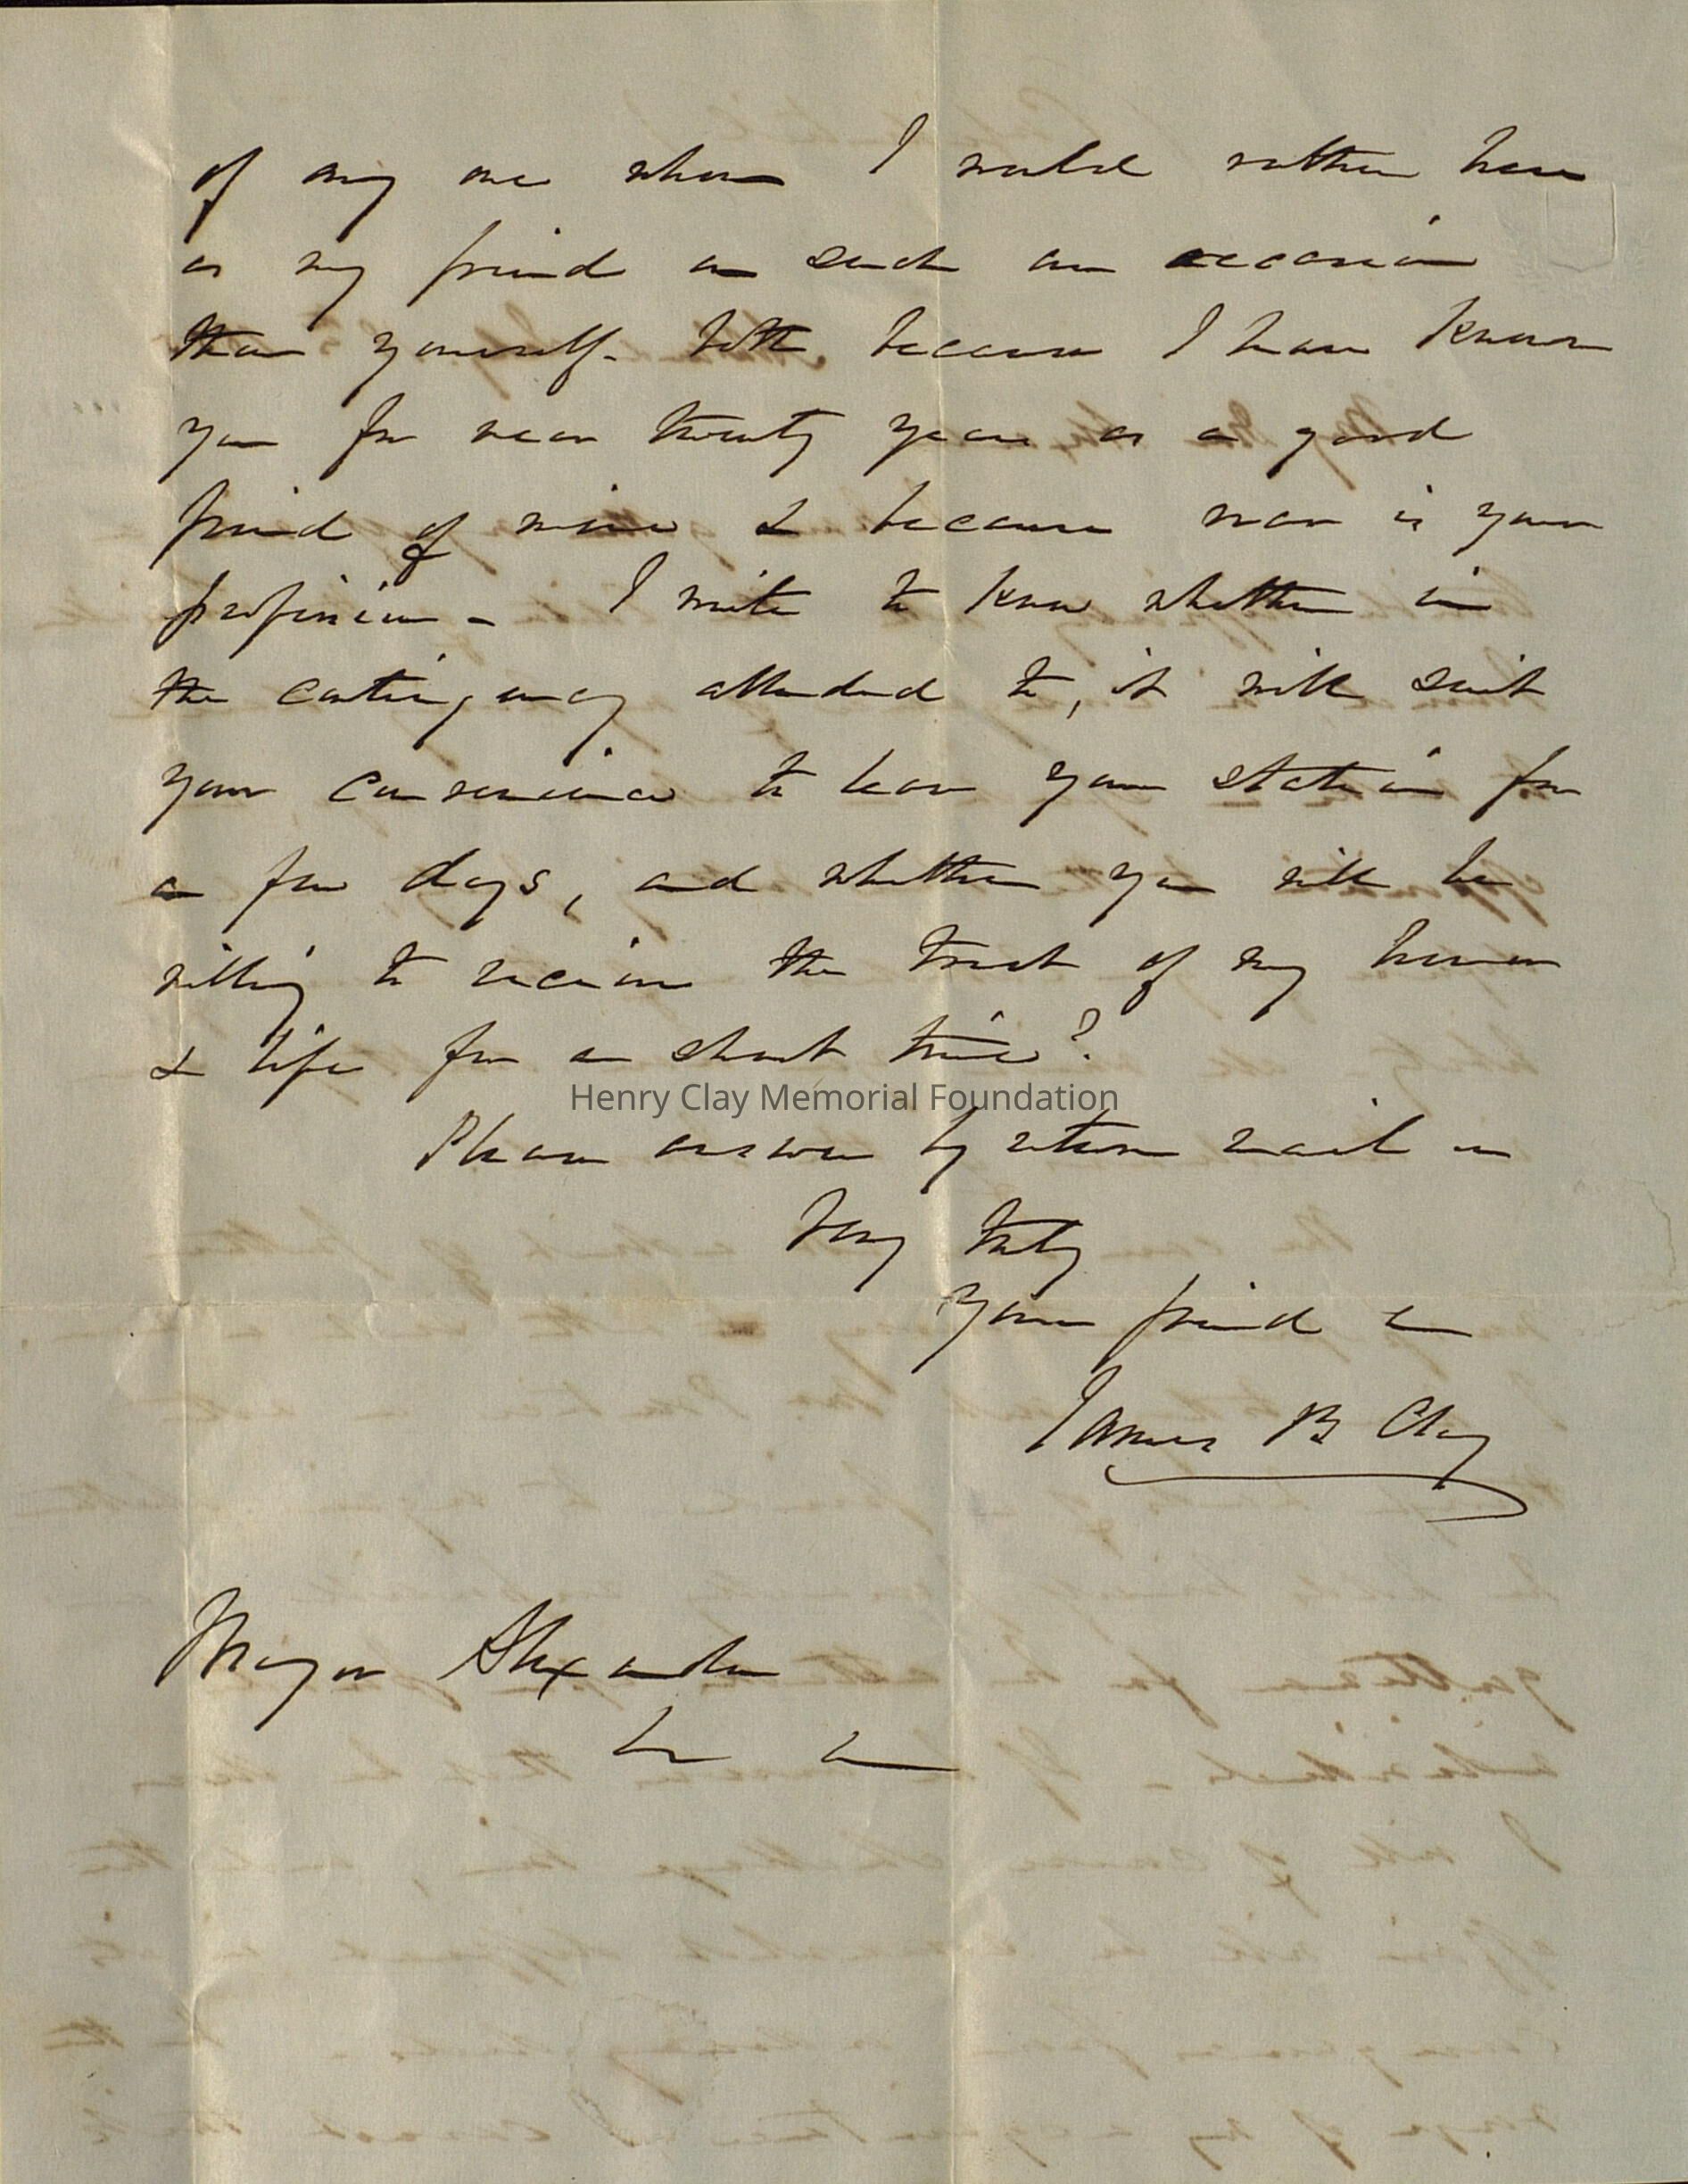 of any one whom I would rather have
as my friend on such an occasion
than yourself - both because I have known
you for near twenty years as a good
friend of mine & because war is your
profession - I write to know whether in
the contingency alluded to, it will suit
your convenience to leave your station for
a few days, and whether you will be
willing to receive the trust of my honor
& life for a short time?
Henry Clay Memorial Foundation
Please answer by return mail
Very truly
Your friend &c
James B Clay
Major Alexander